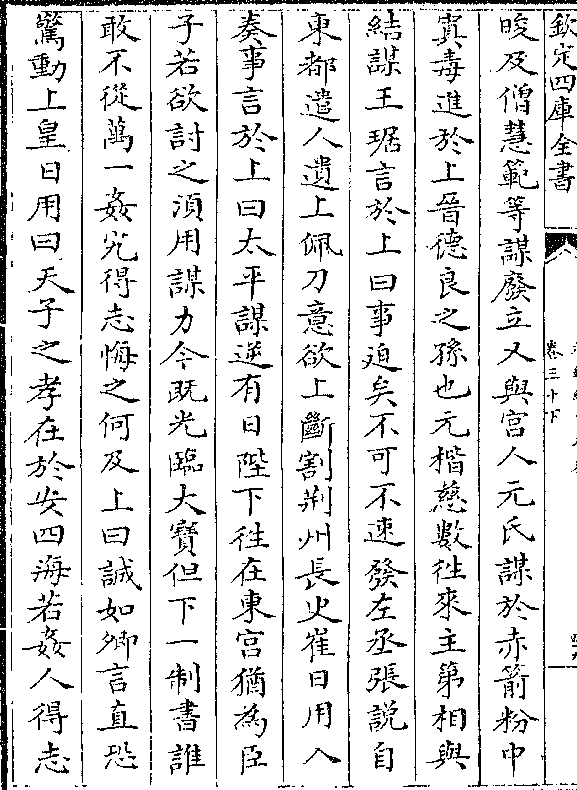 欽定四庫全書
卷三十下
晙及僧慧範等謀廢立又與宫人元氏謀於赤箭粉中
寘毒進於上晉德良之孫也元楷慈數徃來主第相與
結謀王琚言於上曰事迫矣不可不速發左丞張說自
東都遣人遺上佩刀意欲上斷割荆州長史崔日用入
奏事言於上曰太平謀逆有日陛下徃在東宫猶為臣
子若欲討之湏用謀力今既光臨大寶但下一制書誰
敢不從萬一姦宄得志悔之何及上曰誠如卿言直恐
驚動上皇日用曰天子之孝在於安四海若姦人得志